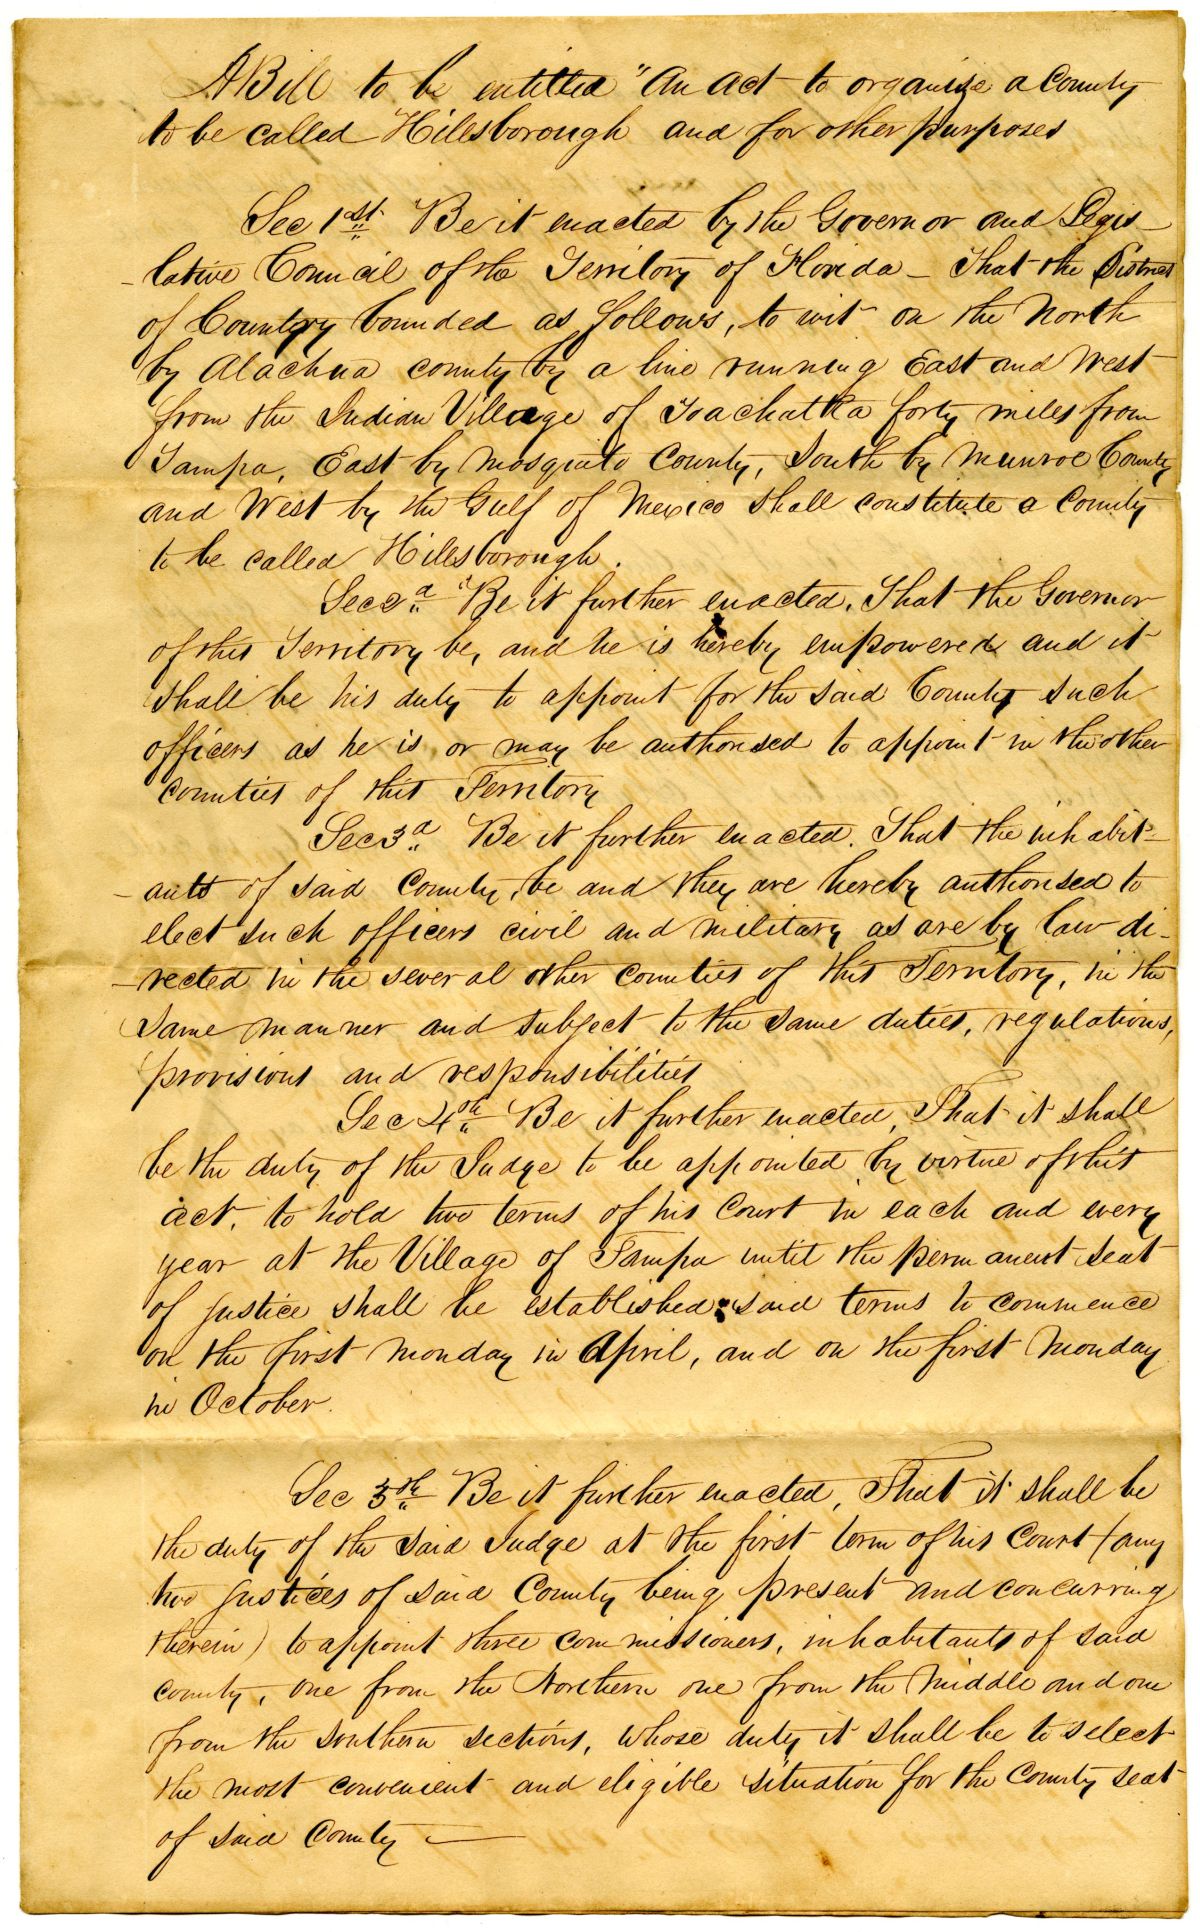 A Bill to be entitled "An act to organise a County
to be called Hilesborough and for other purposes
Sec 1st Be it enacted by the Governor and Legis-
-lative Council of the Territory of Florida - That the District
of Country bounded as follows, to wit on the North
by Alachua county by a line running East and West
from the Indian Village of Toachatka forty miles from
Tampa, East by Mosquito County, South by Munroe County
and West by the Gulf of Mexico shall constitute a County
to be called Hilesborough.
Sec 2d Be it further enacted. That the Governor
of this Territory be, and he is hereby empowered and it
shall be his duty to appoint for the said County such
officers as he is, or may be authorised to appoint in the other
counties of this Territory
Sec 3d Be it further enacted. That the inhabit-
-ants of said County, be and they are hereby authorised to
elect such officers civil and military as are by law di-
-rected in the several other counties of this Territory, in the
same manner and subject to the same duties, regulations,
provisions and responsibilities
Sec 4th Be it further enacted, That it shall
be the duty of the Judge to be appointed by virtue of this
act, to hold two terms of his Court in each and every
year at the Village of Tampa until the permanent seat
of justice shall be established; said terms to commence
on the first Monday in April, and on the first Monday
in October.
Sec 5th Be it further enacted, That it shall be
the duty of the said Judge at the first term of his Court (any
two justices of said County being present and concurring
therein) to appoint three commissioners, inhabitants of said
county, one from the Northern one from the Middle and one
from the southern sections, whose duty it shall be to select
the most convenient and eligible situation for the County seat
of said County —